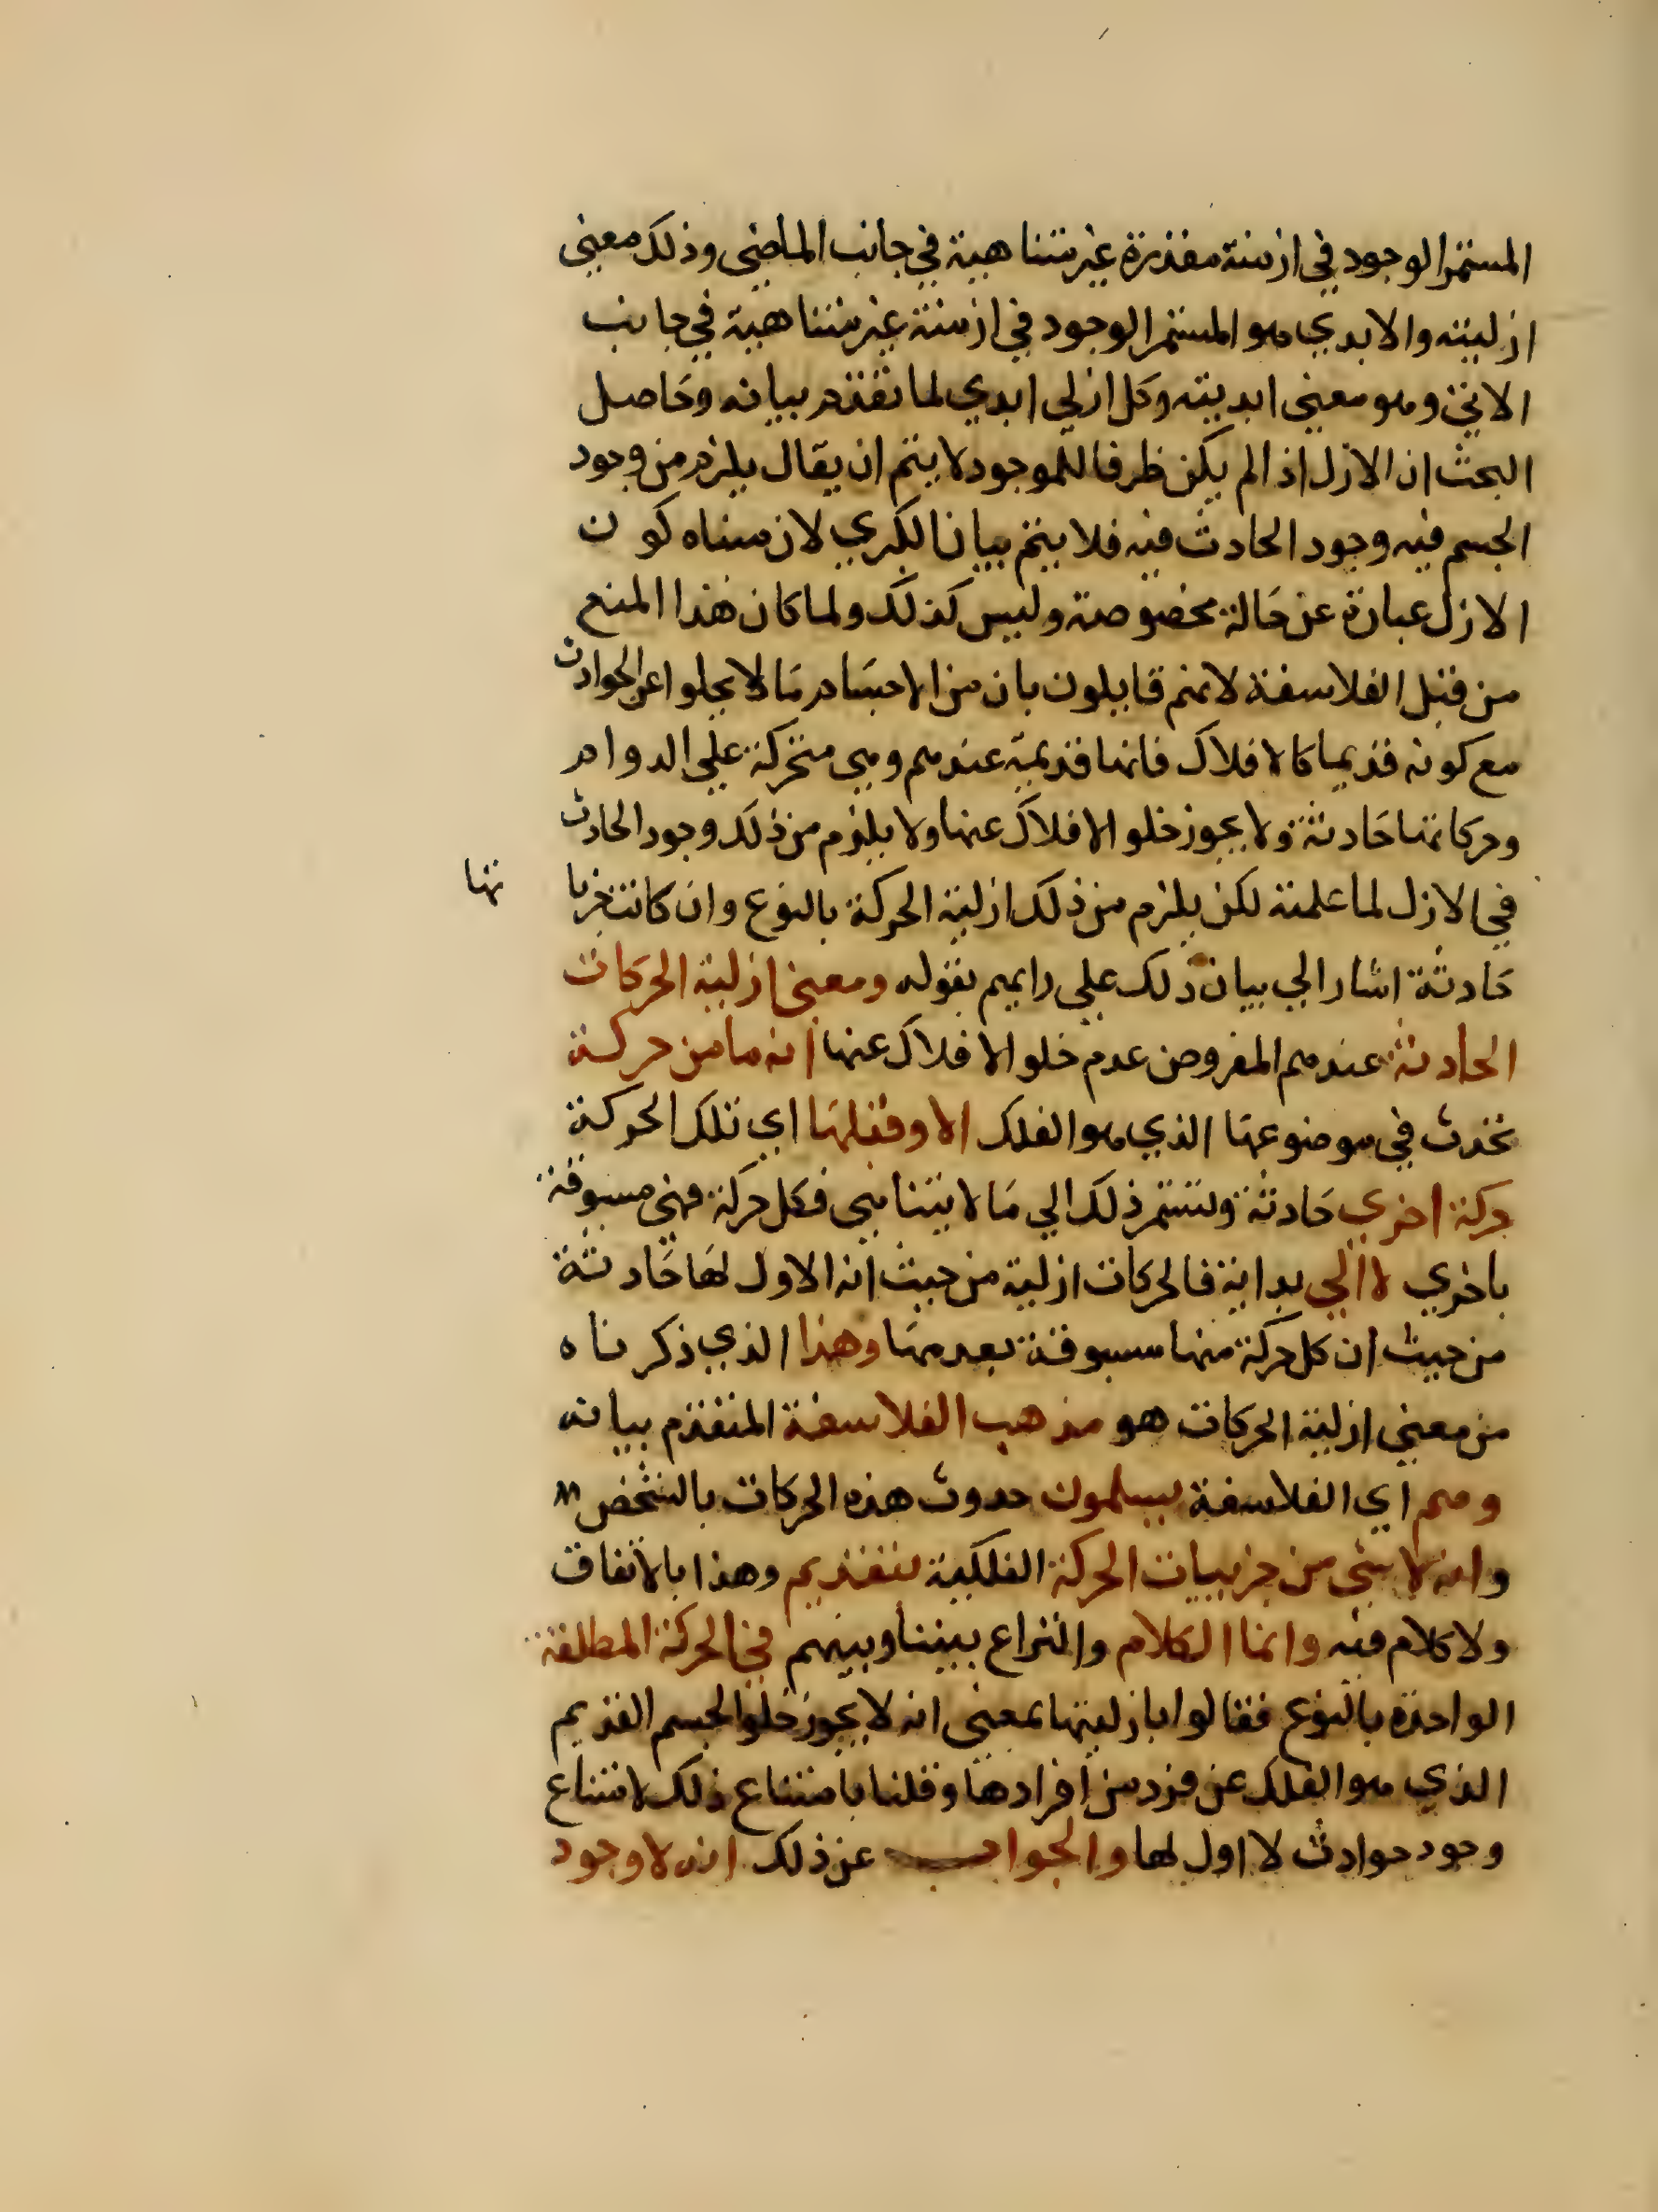 المستمر الوجود في ازمنة مقدرة غير متناهية في جانب الماضي وذلك معني
ازليته والابدي هو المستمر الوجود في ازمنة غير متناهية في جانب
الاتي وهو معني ابديته وكل ازلي ابدي لما تقدم بيانه وحاصل
البحث ان الازل اذا لم يكن ظرفا للموجود لا يتم ان يقال يلزم من وجود
الجسم فيه وجود الحادث فيه فلا يتم بيان الكبري لان مبناه كون
الازل عبارة عن حالة مخصوصة وليس كذلك ولما كان هذا المنع
من قبل الفلاسفة لانهم قايلون بان من الاجسام ما لا يخلوا عن الحوادث
مع كونه قديما كالافلاك فانها قديمة عندهم وهي متحركة علي الدوام
وحركاتها حادثة ولا يجوز خلو الافلاك عنها ولا يلزم من ذلك وجود الحادث
في الازل لما علمته لكن يلزم من ذلك ازلية الحركة بالنوع وان كانت جزيا تها
حادثة اشار الي بيان ذلك علي رايهم بقوله ومعني ازلية الحركات
الحادثة عندهم المفروض عدم خلو الافلاك عنها انه ما من حركة
تحدث في موضوعها الذي هو الفلك الا وقبلها اي تلك الحركة
حركة اخري حادثة ويستمر ذلك الي ما لا يتناهي فكل حركة فهي مسبوقة
باخري لا الي بداية فالحركات ازلية من حيث انه لا اول لها حادثة
من حيث ان كل حركة منها مسبوقة بعدمها وهذا الذي ذكرناه
من معني ازلية الحركات هو مذهب الفلاسفة المتقدم بيانه
وهم اي الفلاسفة يسلمون حدوث هذه الحركات بالشخص
وانه لا شي من جزييات الحركة الفلكية بقديم وهذا بالاتفاق
ولا كلام فيه وانما الكلام والنزاع بيننا وبينهم في الحركة المطلقة
الواحدة بالنوع فقالوا بازليتها بمعني انه لا يجوز خلو الجسم القديم
الذي هو الفلك عن فرد من افرادها وقلنا بامتناع ذلك لامتناع
وجود حوادث لا اول لها والجواب عن ذلك انه لا وجود